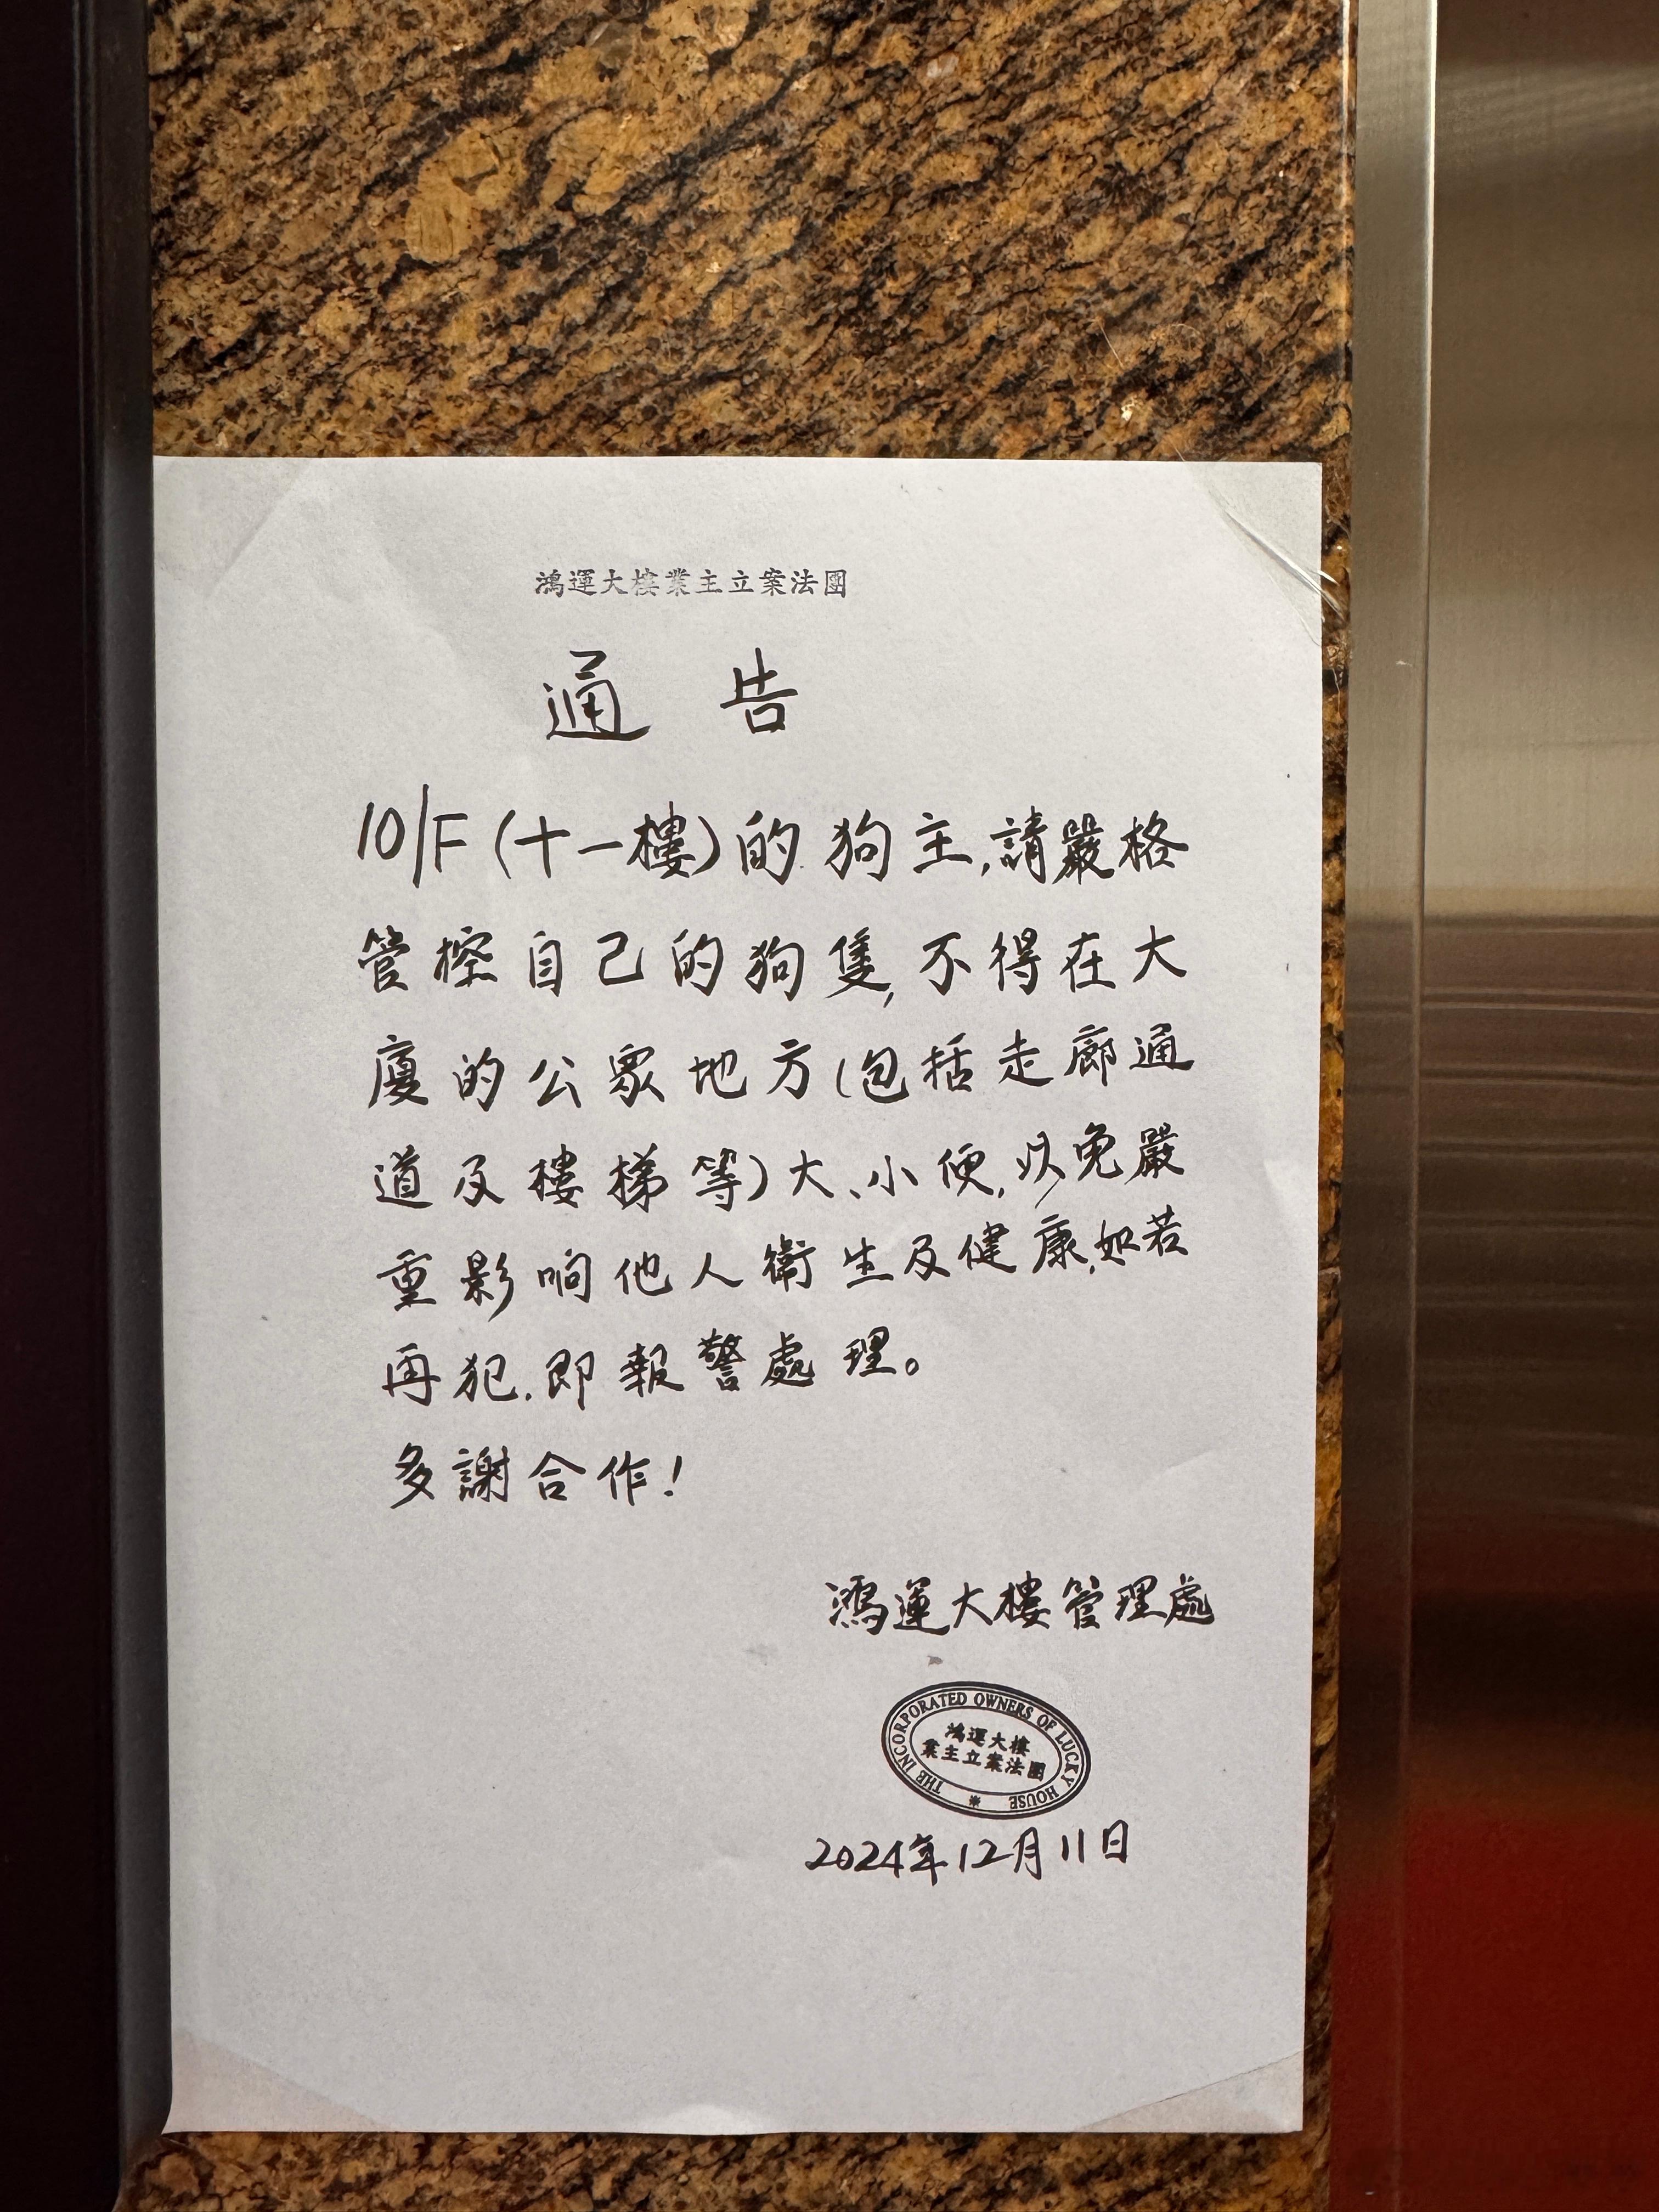 鴻運大樓業主立案法團
通 告
10/F（十一樓）的狗主,請嚴格
管控自己的狗隻,不得在大
廈的公眾地方（包括走廊通
道及樓梯等）大、小便,以免嚴
重影响他人衛生及健康,如若
再犯,即報警處理。
多謝合作！
鴻運大樓管理處
THE INCORPORATED OWNERS OF LUCKY HOUSE
鴻運大樓
業主立案法團
*
2024年12月11日